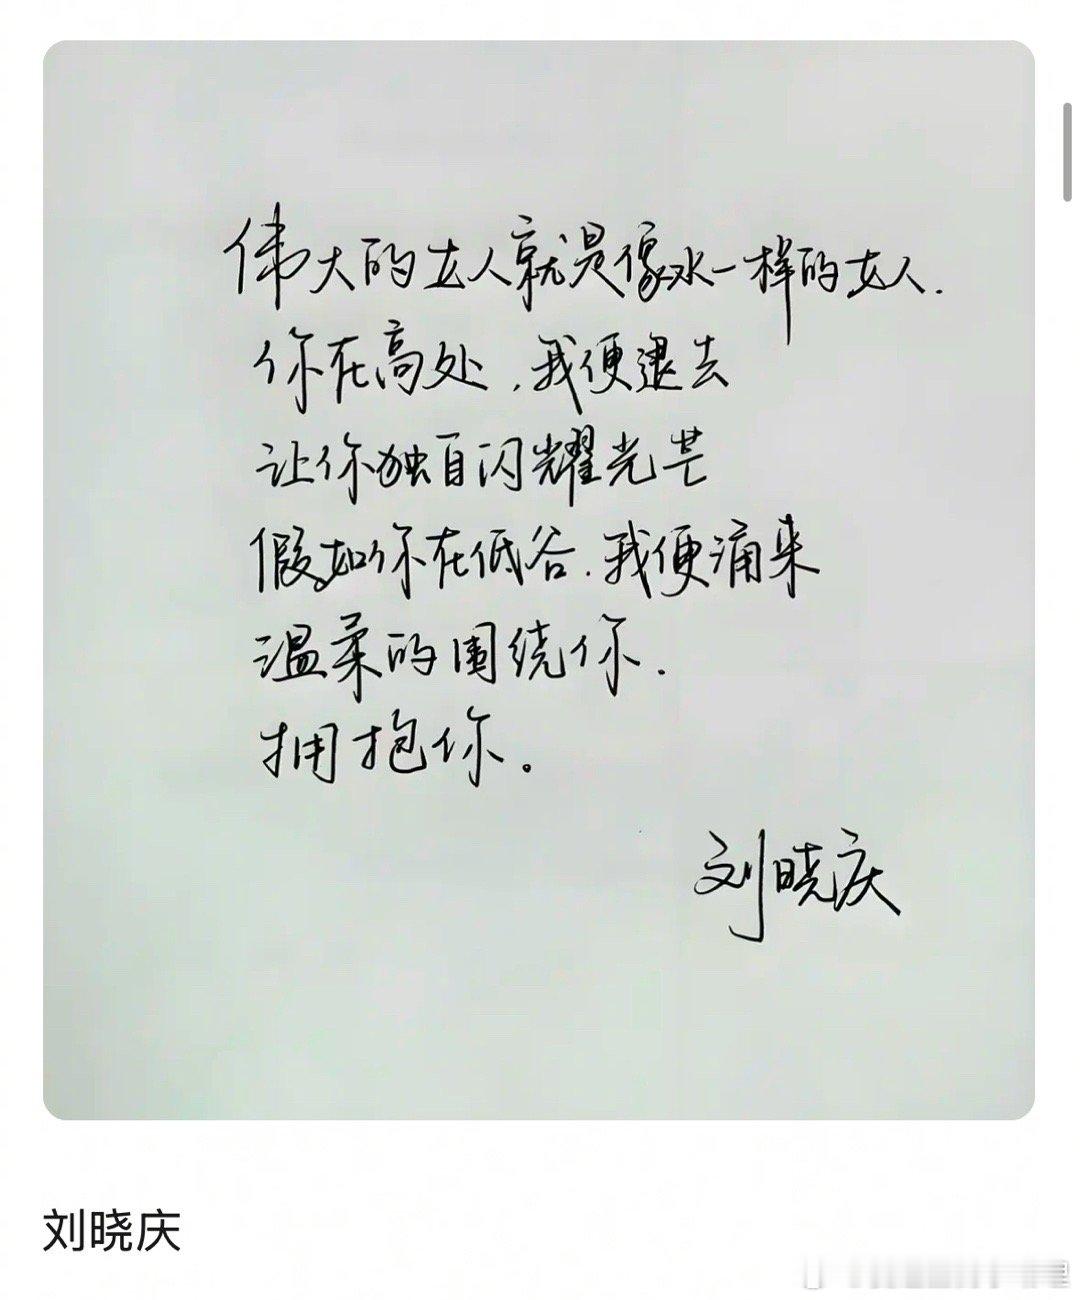 伟大的女人就是像水一样的女人.
你在高处,我便退去
让你独自闪耀光芒
假如你在低谷.我便涌来
温柔的围绕你.
拥抱你。
刘晓庆
刘晓庆